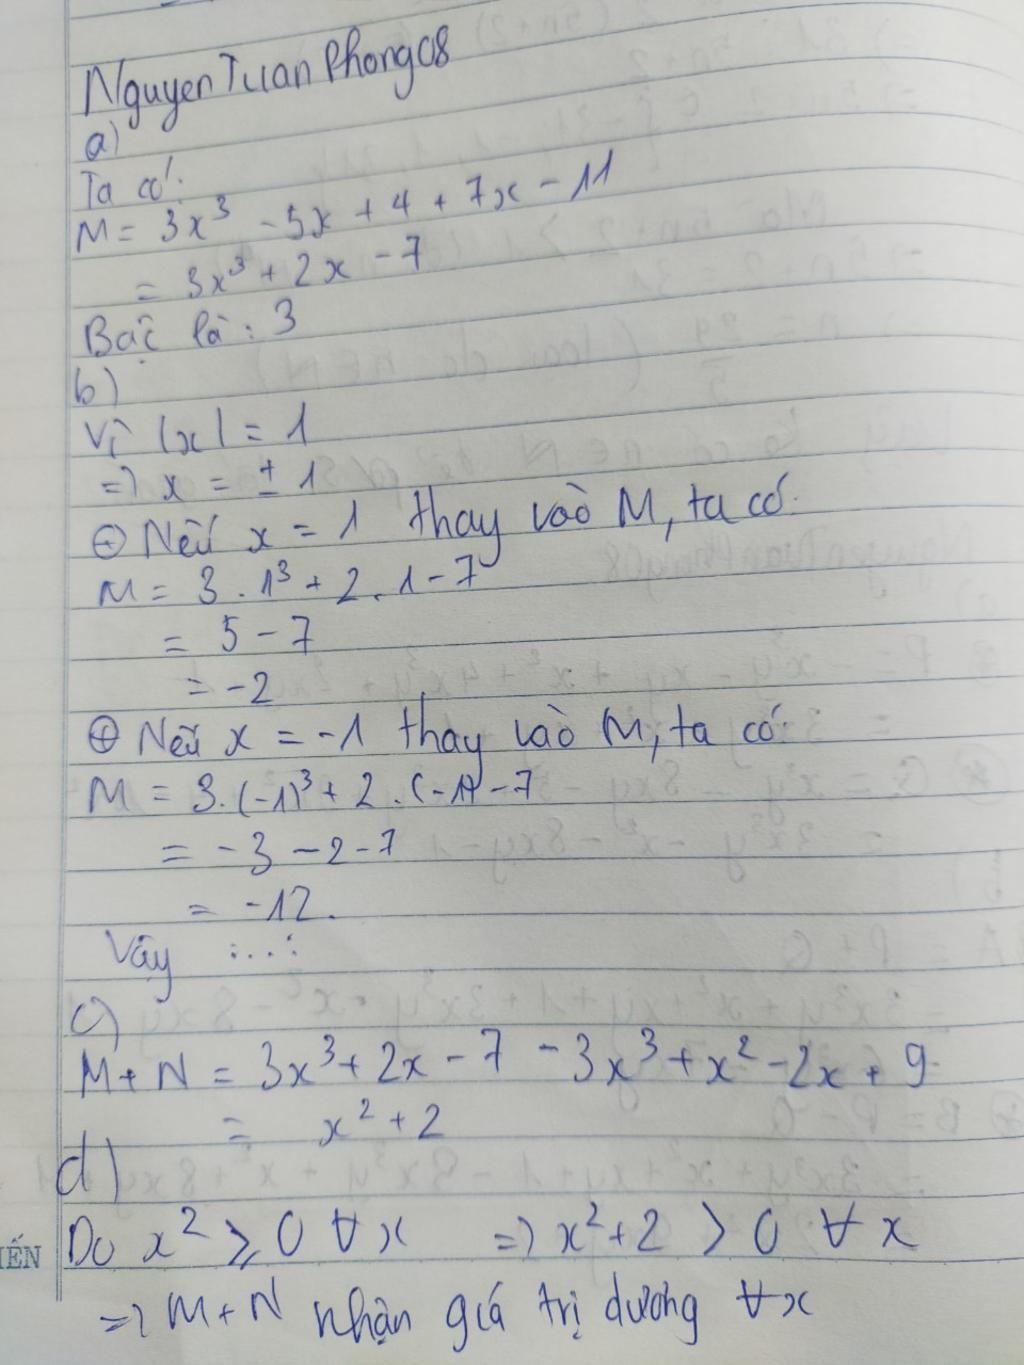 NguyenTuanPhong08
a)
Ta có:
M = 3x³ - 5x + 4 + 7x - 11
= 3x³ + 2x - 7
Bậc là : 3
b)
Vì |x| = 1
=> x = ± 1
⊕ Nếu x = 1 thay vào M, ta có:
M = 3 . 1³ + 2 . 1 - 7
= 5 - 7
= -2
⊕ Nếu x = -1 thay vào M, ta có:
M = 3. (-1)³ + 2 . (-1) - 7
= -3 - 2 - 7
= -12.
Vậy ....:
c)
M + N = 3x³ + 2x - 7 - 3x³ + x² - 2x + 9
= x² + 2
d)
Do x² ⩾ 0 ∀ x => x² + 2 > 0 ∀ x
=> M + N nhận giá trị dương ∀x